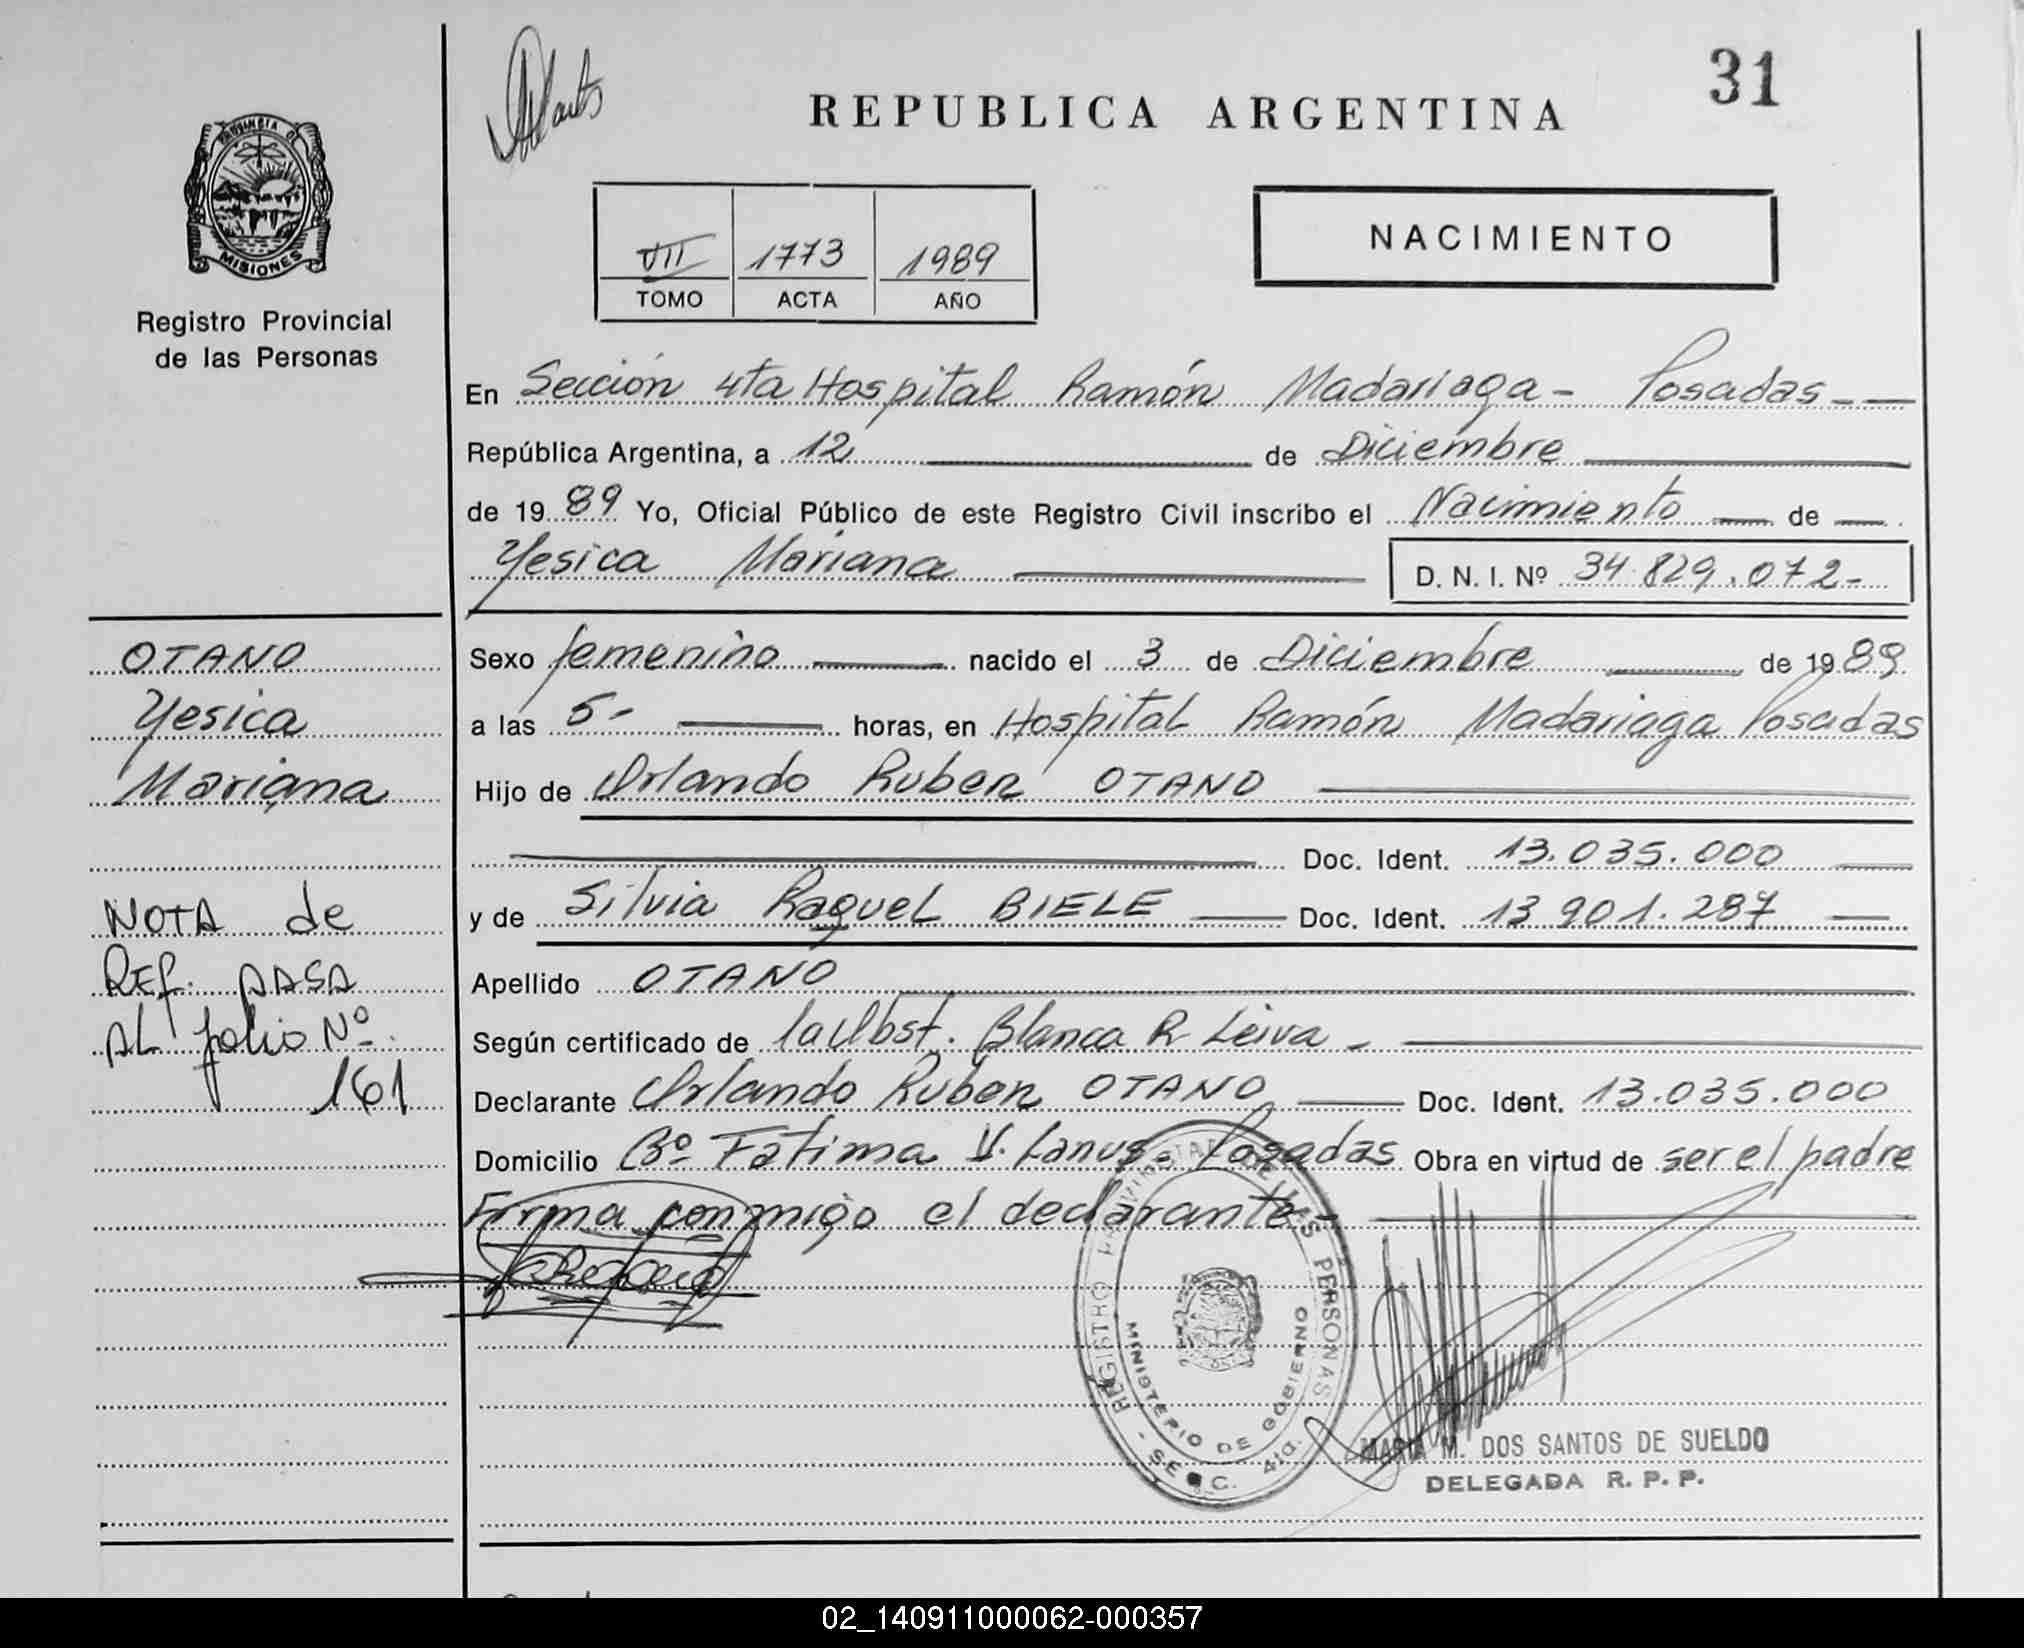 31
REPUBLICA ARGENTINA
PROVINCIA DE
MISIONES
Registro Provincial
de las Personas
VII 1773 1989
TOMO ACTA AÑO
NACIMIENTO
En Sección 4ta Hospital Ramón Madariaga - Posadas - —
República Argentina, a 12 — de Diciembre —
de 1989 Yo, Oficial Público de este Registro Civil inscribo el Nacimiento — de —
Yesica Mariana — D. N. I. Nº 34.829.072-
Sexo femenino — nacido el 3 de Diciembre — de 1989
a las 5- — horas, en Hospital Ramón Madariaga Posadas
Hijo de Orlando Ruben OTANO —
— Doc. Ident. 13.035.000 —
y de Silvia Raquel BIELE — Doc. Ident. 13 901.287 —
Apellido OTANO —
Según certificado de la Obst. Blanca R Leiva - —
Declarante Orlando Ruben OTANO — Doc. Ident. 13.035.000
Domicilio Bº Fátima V. Lanus - Posadas Obra en virtud de ser el padre
Firma conmigo el declarante - —
OTANO
Yesica
Mariana
NOTA de
REf. PASA
AL folio Nº
161
REGISTRO PROVINCIAL DE LAS PERSONAS
MINISTERIO DE GOBIERNO
- SECC. 4ta.
MARIA M. DOS SANTOS DE SUELDO
DELEGADA R. P. P.
02_140911000062-000357